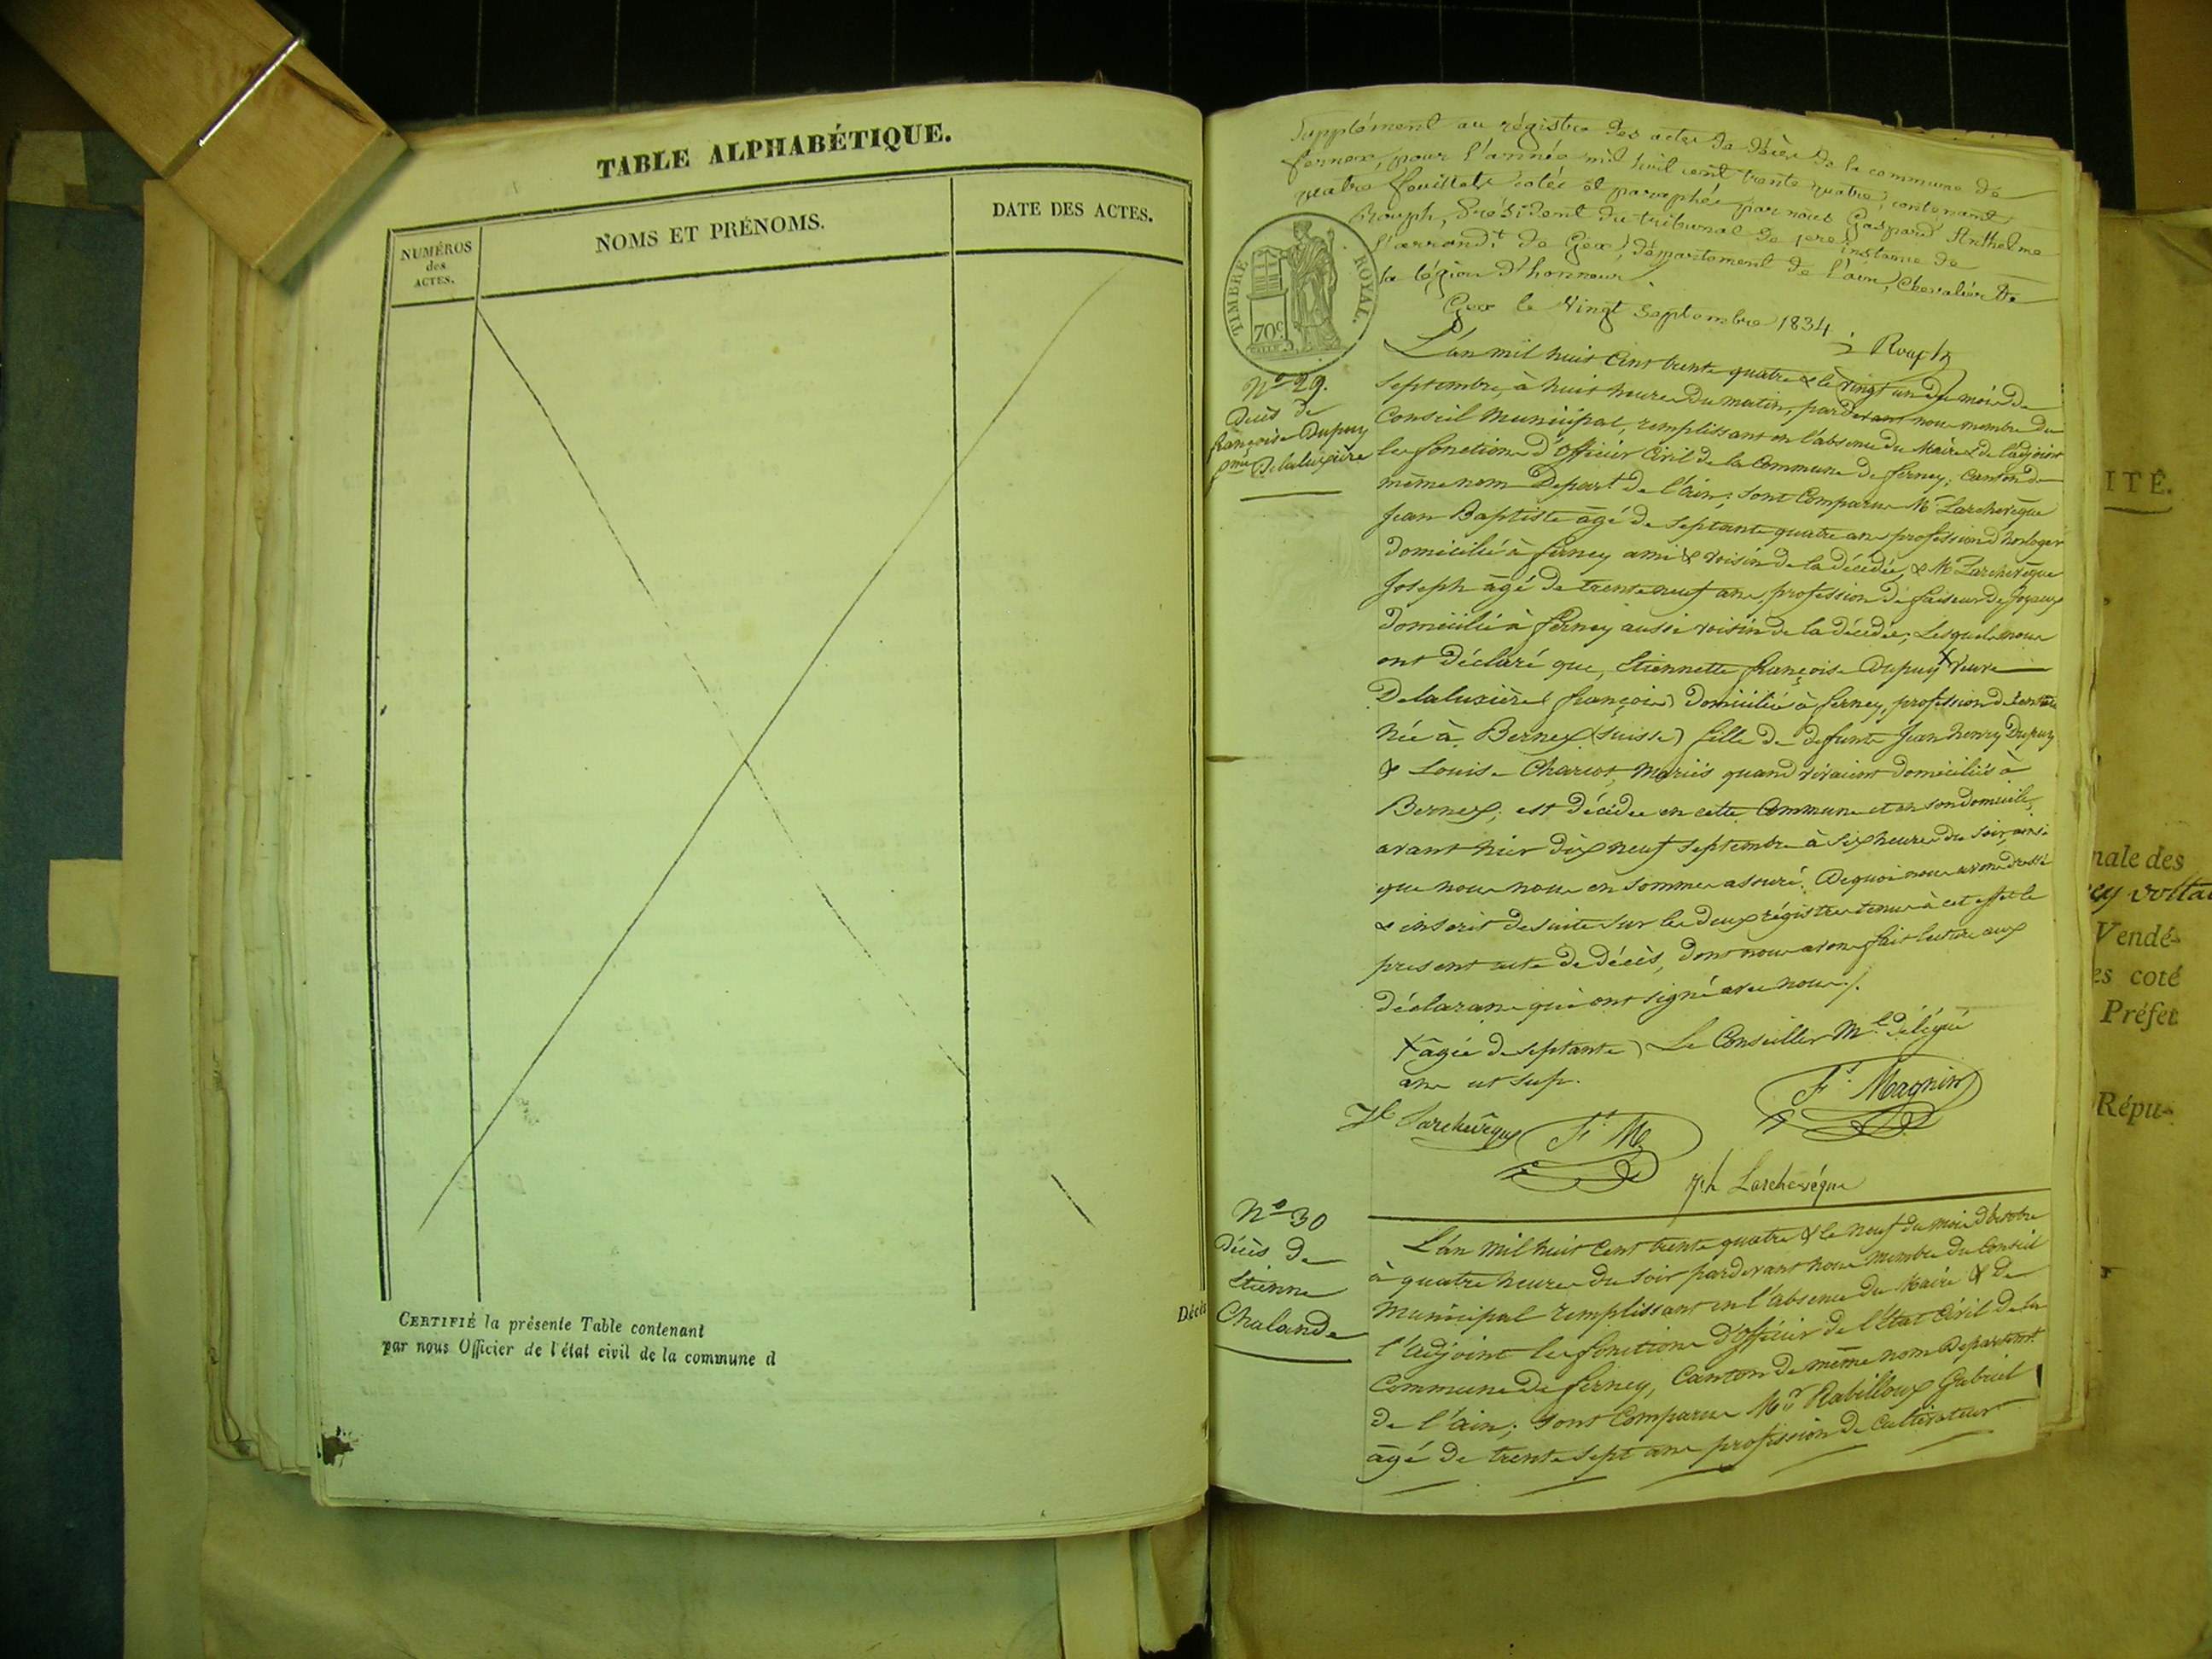 TABLE ALPHABÉTIQUE.
NUMÉROS
des
ACTES.
NOMS ET PRÉNOMS.
DATE DES ACTES.
CERTIFIÉ la présente Table contenant
par nous Officier de l'état civil de la commune d
Décès
Supplément au régistre des actes de décès de la commune de
fernex, pour l'année mil huit cent trente quatre, contenant
quatre feuillets cotés et paraphés par nous Gaspard Anthelme
Rouph, Président du tribunal de 1ere instance de
l'arrondt de Gex, département de l'ain, Chevalier de
la légion d'honneur.
Gex le vingt Septembre 1834.
Rouph
TIMBRE ROYAL.
70c
No 29.
Décès de
françoise Dupuy
fme Delaluxière
L'an mil huit cent trente quatre & le vingt un du mois de
Septembre, à huit heures du matin, pardevant nous membre du
Conseil Municipal, remplissant en l'absence du Maire & de l'adjoint
les fonctions d'Officier Civil de la Commune de ferney, Canton du
même nom Depart de l'ain; sont Comparus Mr Larchevêque
Jean Baptiste âgé de septante quatre ans profession d'horloger
domicilié à ferney ami & voisin de la décédée, & Mr Larchevêque
Joseph âgé de trente neuf ans, profession de faiseur de joyaux
domicilié à ferney aussi voisin de la décédée; Lesquels nous
ont déclaré que, Etiennette françoise Dupuy X veuve
Delaluxière (françois) domiciliée à ferney, profession de
Née à Bernex (Suisse) fille de defunts Jean henry Dupuy
& Louise Charrot, Mariés quand vivaient domiciliés à
Bernex, est décédée en cette Commune et en son domicile,
avant hier dix neuf septembre à six heures du soir, ainsi
que nous nous en sommes assuré. De quoi nous avons dressé
& inscrit de suite sur les deux régistres tenus à cet effet le
présent acte de décès, dont nous avons fait lecture aux
déclarans qui ont signé avec nous./.
X âgée de septante) Le Conseiller Ml délégué
ans ut sup.
Larchevêque
Ft M
Ft Magnin
Jph Larchevêque
No 30
Décès de
Etienne
Chalande
L'an mil huit cent trente quatre & le neuf du mois d'Octobre
à quatre heures du soir pardevant nous membre du Conseil
Municipal remplissant en l'absence du Maire & de
l'Adjoint les fonctions d'Officier de l'Etat Civil de la
Commune de ferney, Canton de même nom Département
de l'ain; sont Comparus Mr Rabilloux Gabriel
âgé de trente sept ans profession de Cultivateur
ITÉ.
nale des
ey volta
Vendé-
es coté
Préfet
Répu-